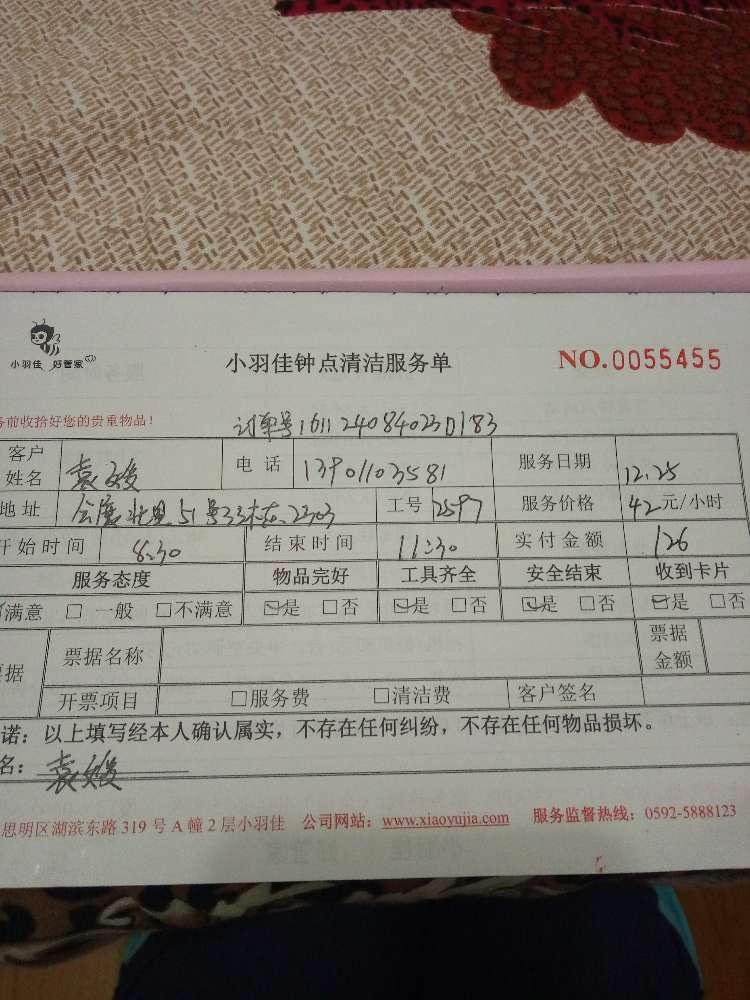 小羽佳 好管家
小羽佳钟点清洁服务单 NO.0055455
务前收拾好您的贵重物品！ 订单号1611240840230183
客户姓名 袁媛 电话 13901103581 服务日期 12.25
地址 会展北里51号33栋2303 工号 2597 服务价格 42元/小时
开始时间 8:30 结束时间 11:30 实付金额 126
服务态度 物品完好 工具齐全 安全结束 收到卡片
满意 □一般 □不满意 ☑是 □否 ☑是 □否 ☑是 □否 ☑是 □否
据 票据名称 票据金额
开票项目 □服务费 □清洁费 客户签名
诺：以上填写经本人确认属实，不存在任何纠纷，不存在任何物品损坏。
名：袁媛
思明区湖滨东路319号A幢2层小羽佳 公司网站：www.xiaoyujia.com 服务监督热线：0592-5888123